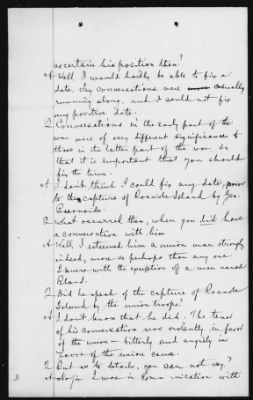 ascertain his position then?
A Well I would hardly be able to fix a
date. My conversations were casually
running along, and I could not fix
any positive date.
Q Conversations in the early part of the
war were of very different significance to
those in the latter part of the war so
that it is important that you should
fix the time.
A I don't think I could fix any date, prior
to the capture of Roanoke Island by Gen.
Burnside.
Q What occurred then, when you did have
a conversation with him
A Well, I esteemed him a union man strongly
indeed, more so perhaps than any one
I knew with the exception of a man named
Bland.
Q Did he speak of the capture of Roanoke
Island by the union troops?
A I don't know that he did. The tenor
of his conversation were evidently in favor
of the union - bitterly and angrily in
favor of the union cause.
Q But as to details, you can not say?
A No sir I was in communication with